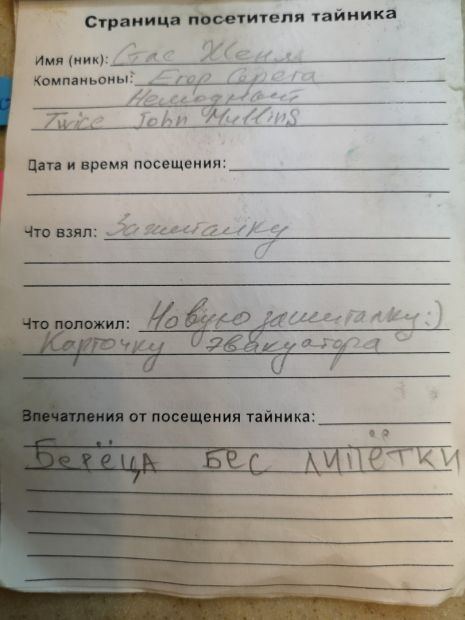 Страница посетителя тайника
Имя (ник): Стас Женя
Компаньоны: Егор Серега
Немодный
Twice John Mullins
Дата и время посещения:
Что взял: Зажигалку
Что положил: Новую зажигалку:)
Карточку эвакуатора
Впечатления от посещения тайника:
Берёца бес липётки